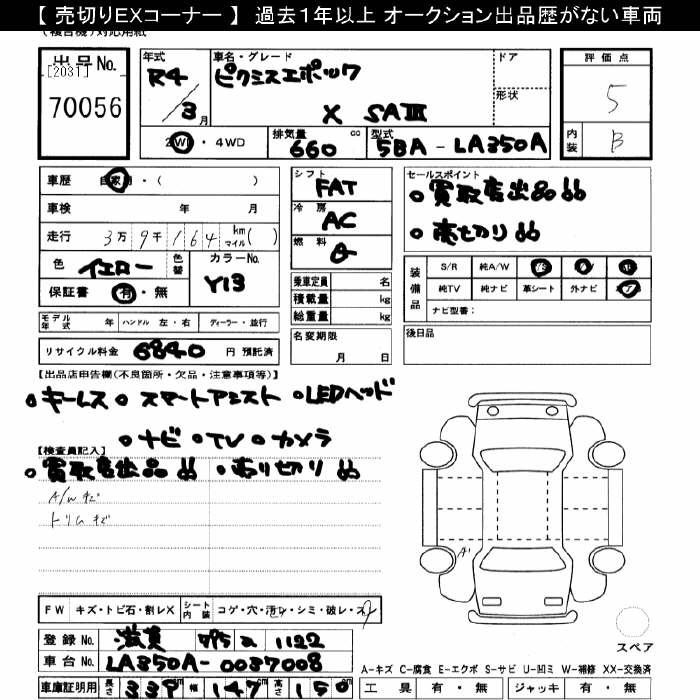 【 売切りEXコーナー 】 過去１年以上 オークション出品歴がない車両
出品No. [2031] 70056
年式 R4/3月
車名・グレード ピクシスエポック X SAⅢ
ドア 形状
2WD・4WD
排気量 660 cc
型式 5BA - LA350A
評価点 5
内装 B
車歴 自家用・( )
車検 年 月
走行 3万9千164 km マイル( )
色 イエロー 色替 カラーNo. Y13
保証書 有・無
シフト FAT
冷房 AC
燃料 G
乗車定員 名
積載量 kg
総重量 kg
セールスポイント
○買取店出品!!
○売切り!!
装備品 S/R 純A/W
純TV 純ナビ 革シート 外ナビ
ナビ型番：
モデル年式 年 ハンドル 左・右 ディーラー・並行
リサイクル料金 6840 円 預託済
名変期限 月 日
後日品
【出品店申告欄(不良箇所・欠品・注意事項等)】
○キーレス ○スマートアシスト ○LEDヘッド
○ナビ ○TV ○カメラ
【検査員記入】
○買取店出品!! ○売り切り!!
A/Wキズ
トリムキズ
A1
FW キズ・トビ石・割レX シート内装 コゲ・穴・汚レ・シミ・破レ・スレ
登録No. 滋賀
車台No. LA350A-0037008
車庫証明用 長さ 339 cm 幅 147 cm 高さ 150 cm
スペア
A－キズ C－腐食 E－エクボ S－サビ U－凹ミ W－補修 XX－交換済
工具 有・無 ジャッキ 有・無